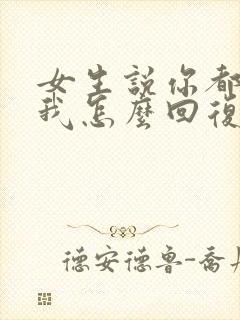 女生說你都
我怎麼回復
德安德鲁-喬丹